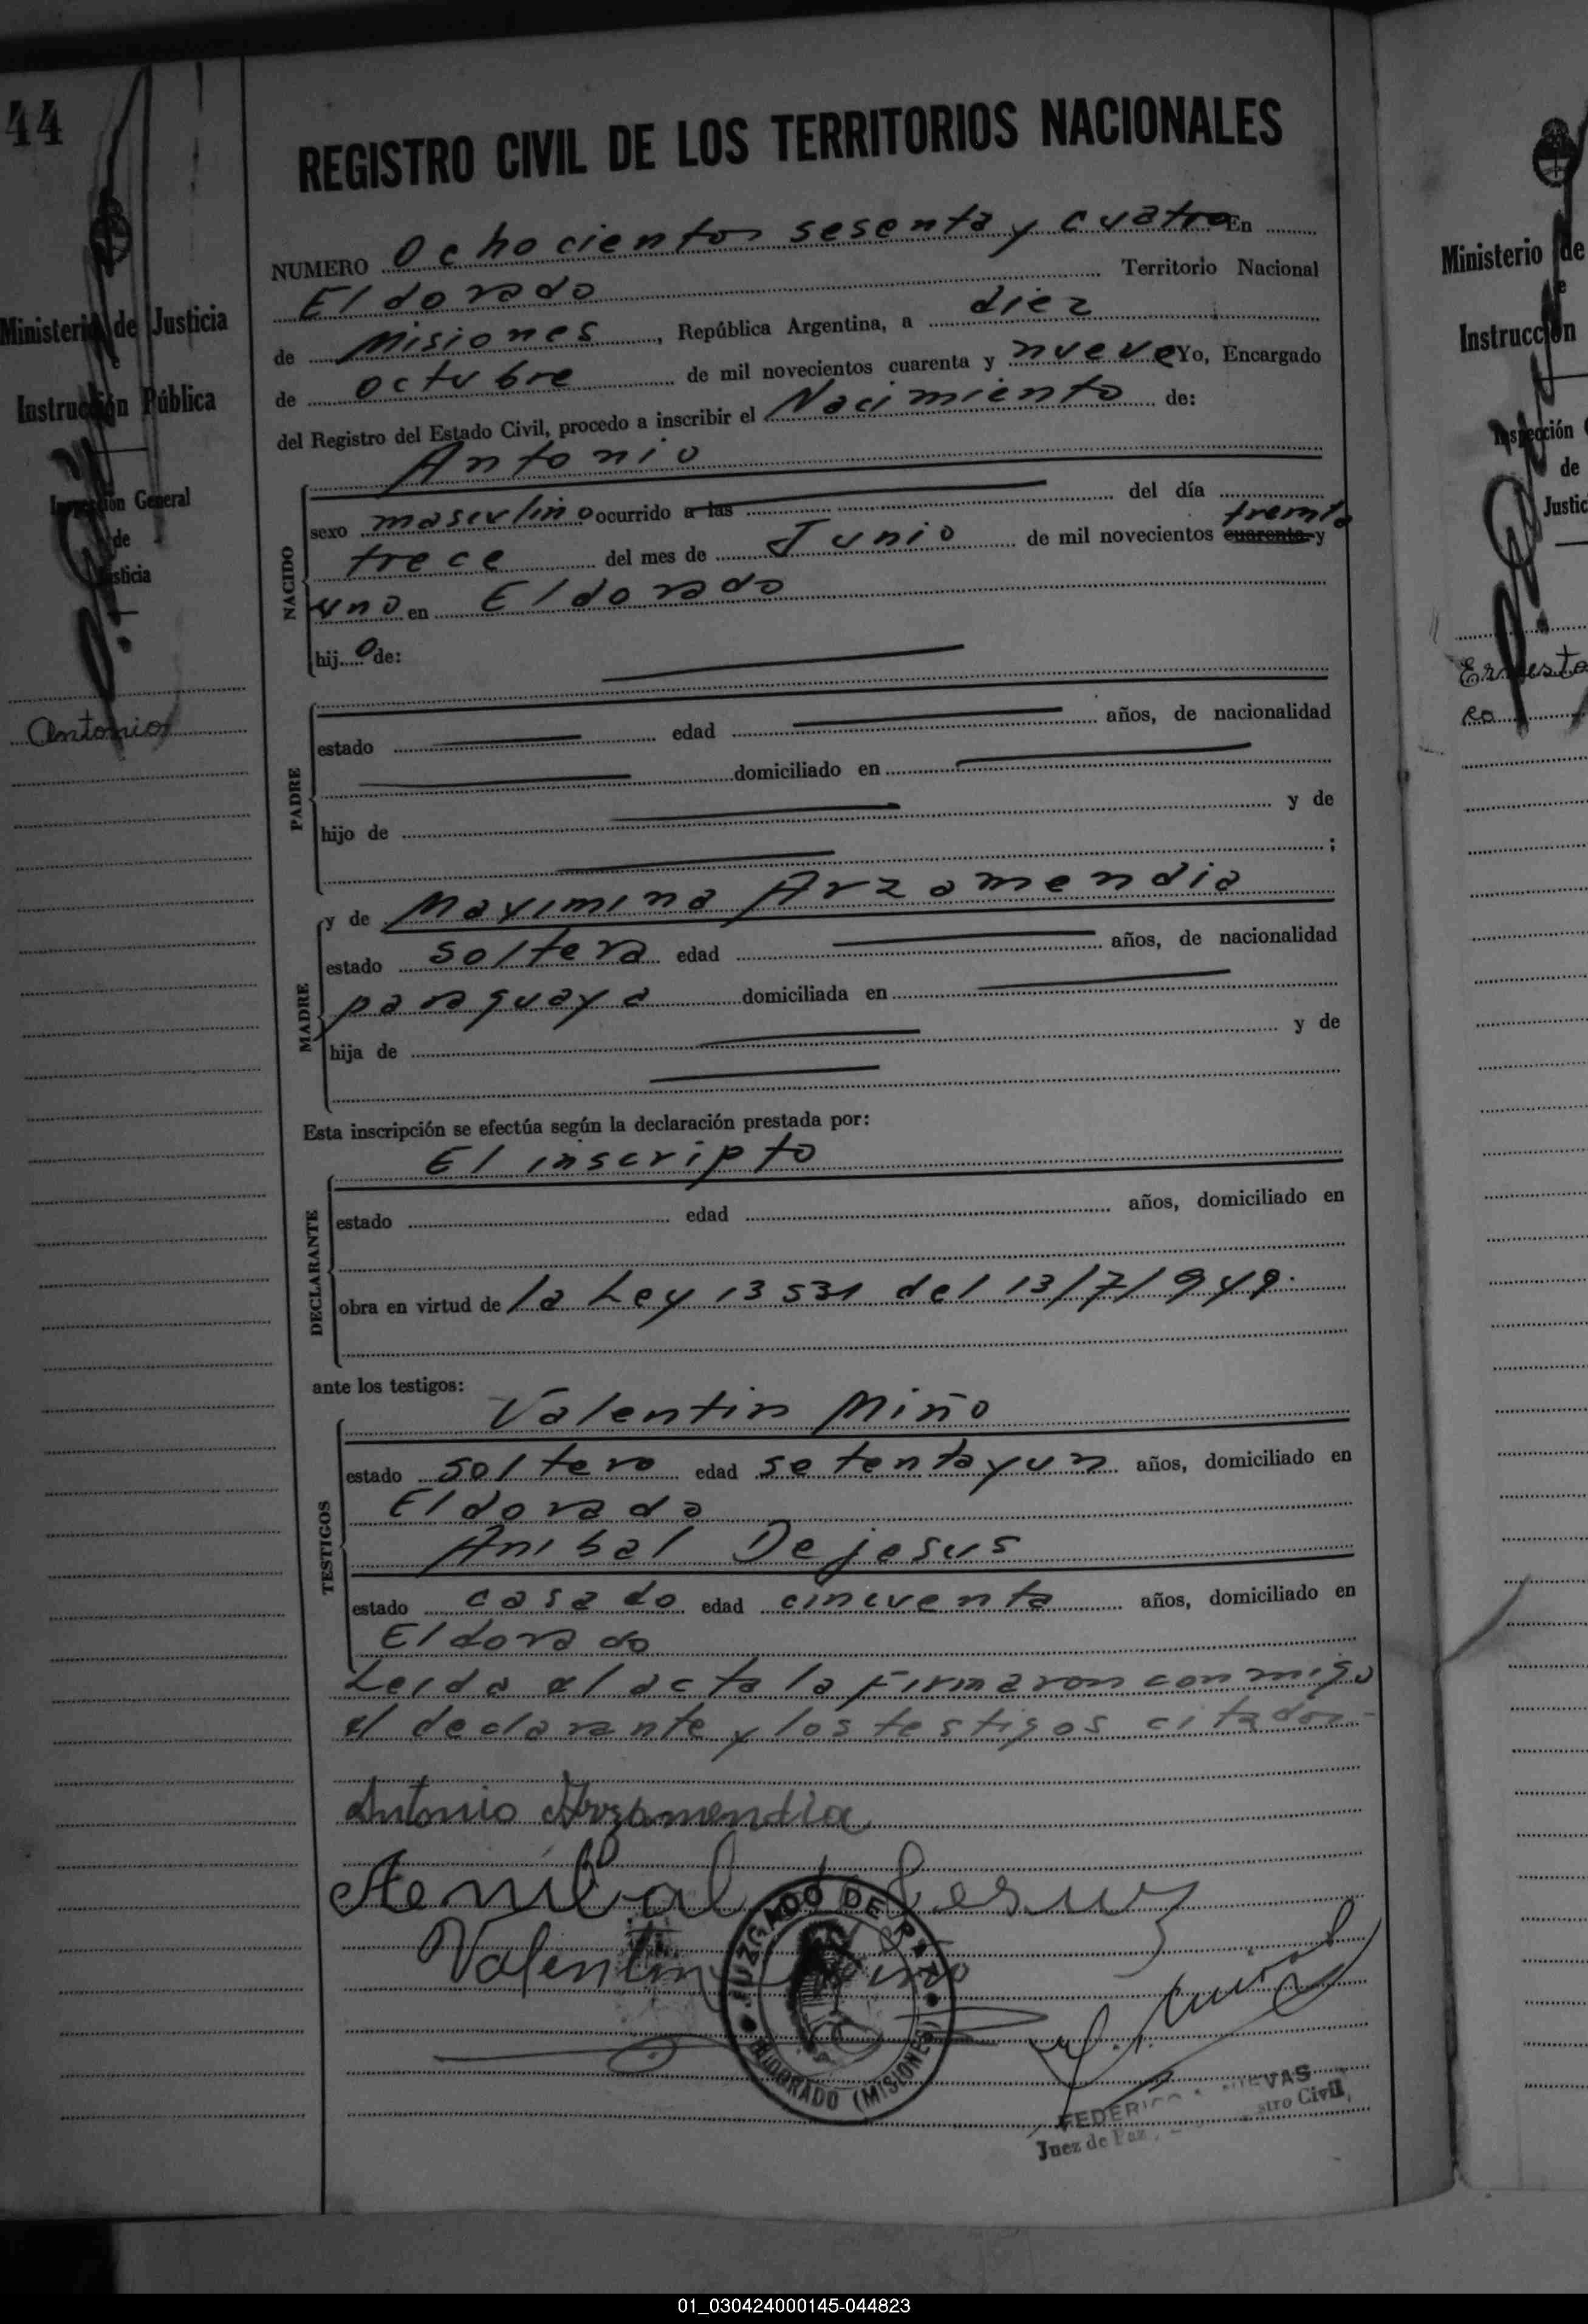 44
Ministerio de Justicia
Instrucción Pública
Inspección General
de
Justicia
Antonio
REGISTRO CIVIL DE LOS TERRITORIOS NACIONALES
NUMERO Ochocientos sesenta y cuatro En
Eldorado Territorio Nacional
de Misiones, República Argentina, a diez
de octubre de mil novecientos cuarenta y nueve Yo, Encargado
del Registro del Estado Civil, procedo a inscribir el Nacimiento de:
Antonio
NACIDO
sexo masculino ocurrido a las del día
trece del mes de Junio de mil novecientos cuarenta y treinta
uno en Eldorado
hijo de:
PADRE
estado edad años, de nacionalidad
domiciliado en
hijo de y de
;
MADRE
y de Maximina Arzamendia
estado soltera edad años, de nacionalidad
paraguaya domiciliada en
hija de y de
Esta inscripción se efectúa según la declaración prestada por:
DECLARANTE
El inscripto
estado edad años, domiciliado en
obra en virtud de la Ley 13531 del 13/7/949.
ante los testigos:
TESTIGOS
Valentin Miño
estado soltero edad setentayun años, domiciliado en
Eldorado
Anibal Dejesus
estado casado edad cincuenta años, domiciliado en
Eldorado
Leida el acta la firmaron conmigo
el declarante y los testigos citados-
Antonio Arzamendia
Valentin Miño
JUZGADO DE PAZ
ELDORADO (MISIONES)
FEDERICO
Juez de Paz Registro Civil
Ministerio de
Instrucción
Inspección
de
Justic
Ernesto
ro
01_030424000145-044823